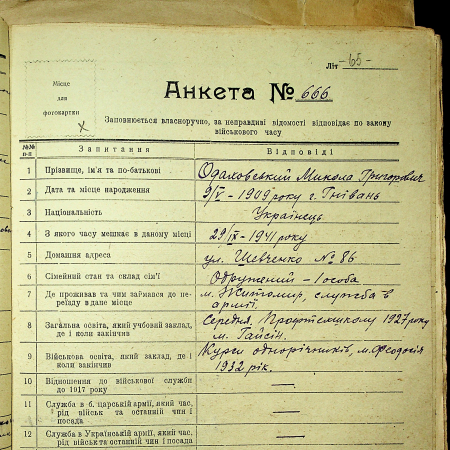 Літ -65-
Місце
для
фотокартки
Анкета № 666
Заповнюється власноручно, за неправдиві відомості відповідає по закону
військового часу
№№ п-п Запитання Відповіді
1 Прізвище, ім'я та по-батькові Одаховський Микола Григорович
2 Дата та місце народження 9/V - 1909 року г. Гнівань
3 Національність Українець
4 З якого часу мешкає в даному місці 29/IX - 1941 року
5 Домашня адреса ул. Шевченко № 86
6 Сімейний стан та склад сім'ї Одружений - 1 особа
7 Де проживав та чим займався до переїзду в дане місце м. Житомир, служба в
армії.
8 Загальна освіта, який учбовий заклад, де і коли закінчив Середня, Профтехшколу 1927 року
м. Гайсін.
9 Військова освіта, який заклад, де і коли закінчив Курси однорічників, м. Феодосія
1932 рік.
10 Відношення до військової служби до 1917 року —
11 Служба в б. царській армії, який час, рід військ та останній чин і посада —
12 Служба в Українській армії, який час, рід військ та останній чин і посада —